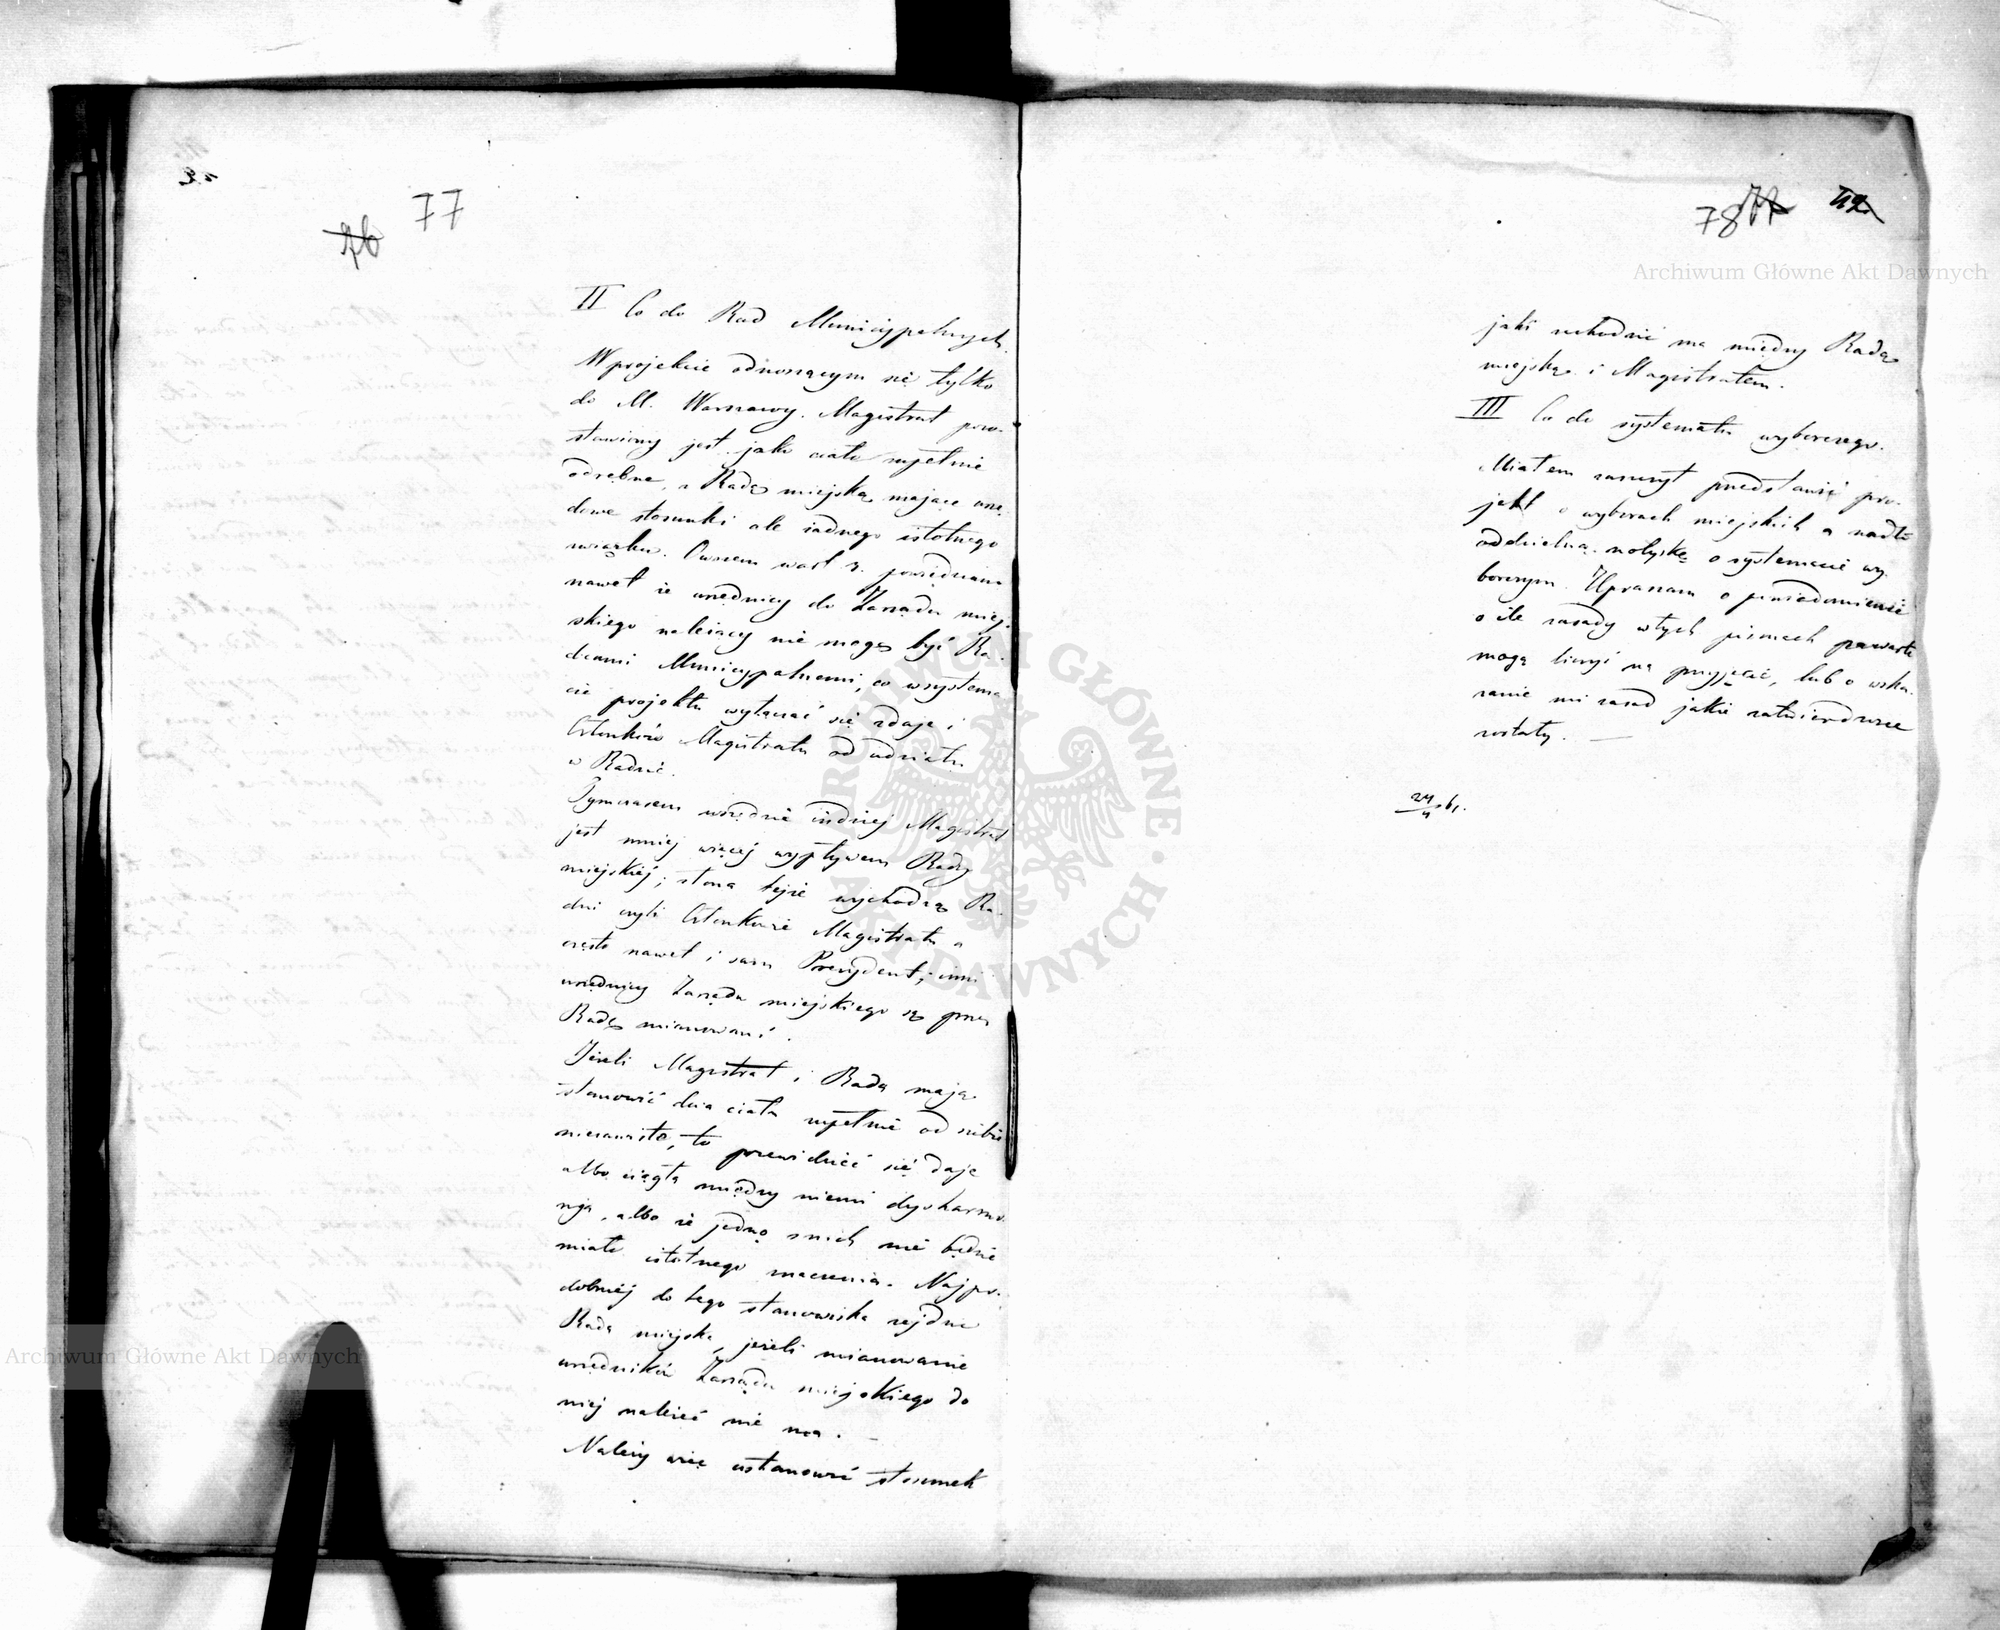 77
76
II Co do Rad Municypalnych.
W projekcie odnoszącym się tylko
do M. Warszawy. Magistrat pozo-
stawiony jest jako ciało zupełnie
odrębne, z Radą miejską mające urzę-
dowe stosunki ale żadnego istotnego
związku. Owszem w art 3. powiedziano
nawet że urzędnicy do Zarządu miej-
skiego należący nie mogą być Ra-
dcami Municypalnemi, co w systema-
cie projektu wyłączać się zdaje i
Członków Magistratu od udziału
w Radzie.
Tymczasem wszędzie indziej Magistrat
jest mniej więcej wypływem Rady
miejskiéj; z łona tejże wychodzą Ra-
dni czyli Członkowie Magistratu a
często nawet i sam Prezydent; inni
urzędnicy Zarządu miejskiego są przez
Radę mianowani.
Jeżeli Magistrat i Rada mają
stanowić dwa ciała zupełnie od siebie
niezawisłe, to przewidzieć się daje
albo ciągła między niemi dysharmo-
nja, albo że jedno z nich nie będzie
miało istotnego znaczenia. Najpo-
dobniéj do tego stanowiska zejdzie
Rada miejska, jeżeli mianowanie
urzędników Zarządu miejskiego do
niej należeć nie ma. —
Należy więc ustanowić stosunek
78 77 42
jaki zachodzić ma między Radą
miejską i Magistratem.
III Co do systematu wyborczego.
Miałem zaszczyt przedstawić pro-
jekt o wyborach miejskich a nadto
oddzielną notyskę o systemacie wy-
borczym. Upraszam o powiadomienie
o ile zasady w tych pismach zawarte
mogą liczyć na przyjęcie, lub o wska-
zanie mi zasad jakie zatwierdzone
zostały. —
24/4 61.
Archiwum Główne Akt Dawnych
Archiwum Główne Akt Dawnych
ARCHIWUM GŁÓWNE AKT DAWNYCH